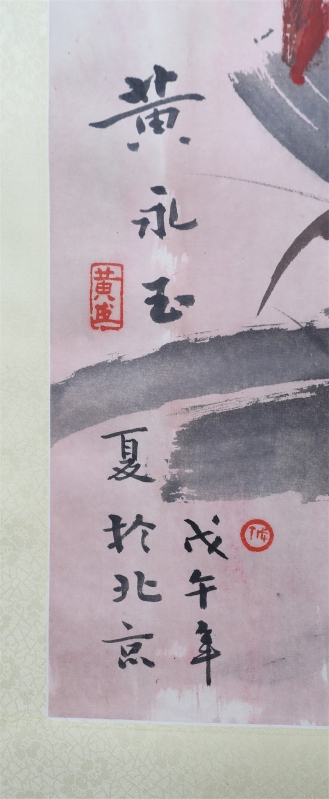 黄永玉
戊午年
夏於北京
黄